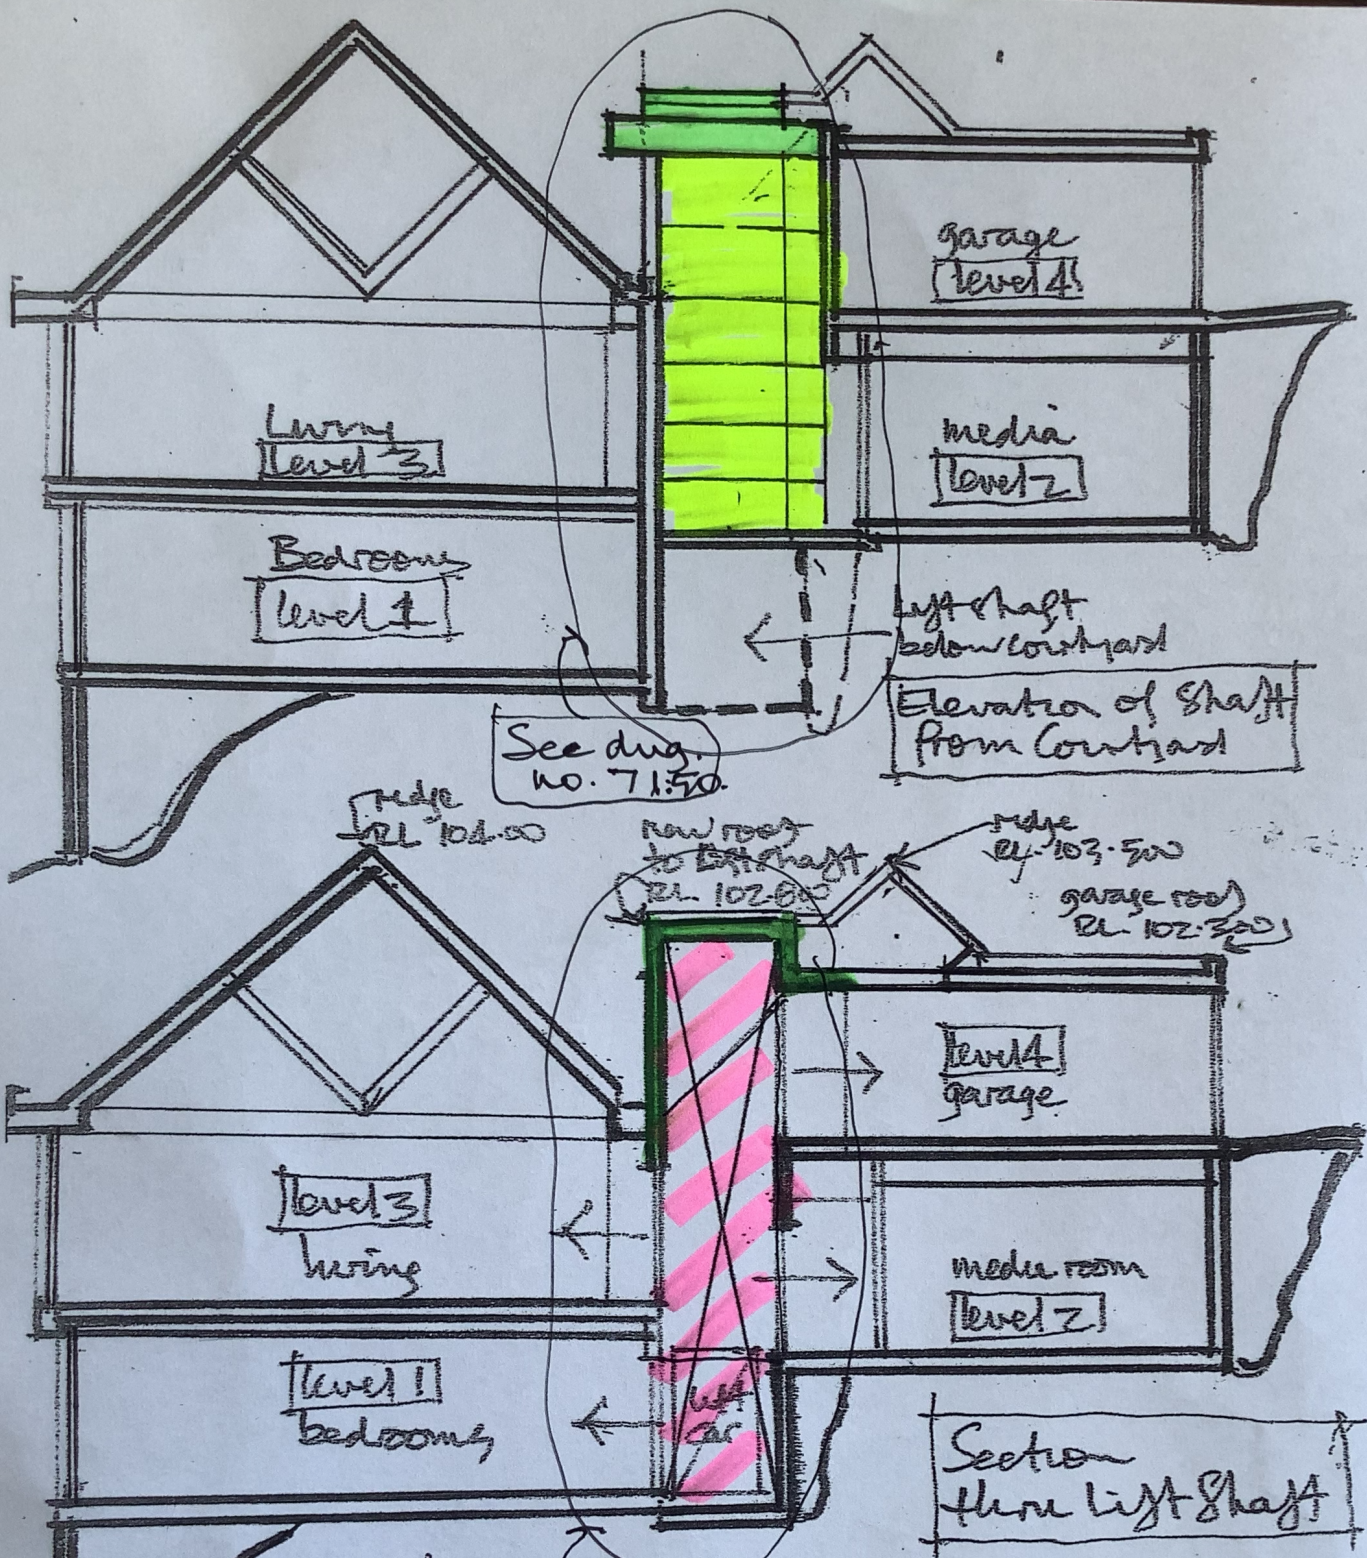 garage
level 4
Living
level 3
media
level 2
Bedrooms
level 1
Lift shaft
below courtyard
Elevation of Shaft
from Courtyard
See dwg.
no. 7 1:50.
ridge
RL 104.00
new roof
to lift shaft
RL. 102.800
ridge
RL. 103.500
garage roof
RL. 102.300
level 4
garage
level 3
living
media room
level 2
level 1
bedrooms
lift
car
Section
thru Lift Shaft